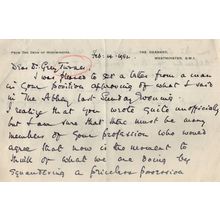 FROM THE DEAN OF WESTMINSTER.
THE DEANERY,
WESTMINSTER, S.W.1.
Feb. 1942
Dear Dr. Grey Turner
I was pleased to get a letter from a man
in your position approving of what I said
in the Abbey last Sunday evening.
I realize that you wrote quite unofficially
but I am sure that there must be many
members of your profession who would
agree that now is the moment to
think of what we are doing by
squandering a priceless possession